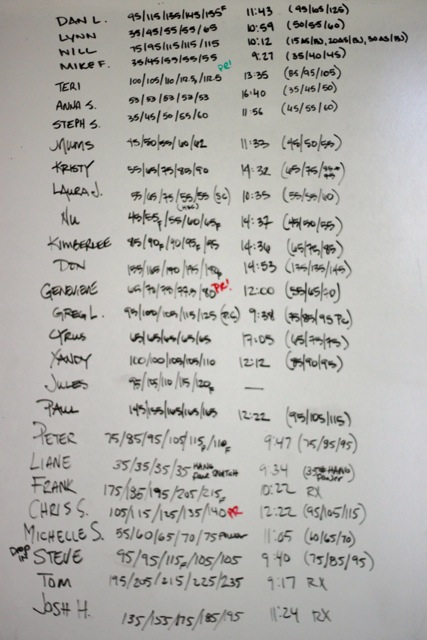 DAN L. 95/115/135/145/155F 11:43 (95/105/125)
LYNN 35/45/55/55/65 10:59 (50/55/60)
WILL 75/95/115/115/115 10:12
MIKE F. 35/45/55/55/55 9:27 (35/40/45)
TERI 100/105/110/112.5/112.5 PR! 13:35 (85/95/105)
ANNA S. 53/53/53/53/53 16:40 (35/45/50)
STEPH S. 35/45/50/55/60 11:56 (45/55/60)
MUMS 45/50/55/60/62 11:33 (45/50/55)
KRISTY 55/65/75/85/90 14:32 (65/75/
LAURA J. 55/65/75/55/55 10:35 (55/55/60)
NU 14:37 (45/50/55)
KIMBERLEE 85/90F/90/95F/95 14:36 (65/75/85)
DON 14:53 (135/135/145)
GENEVIEVE PR! 12:00 (55/65/70)
GREG L. 95/100/105/115/125 (P.C) 9:38 (75/85/95 PC)
CYRUS 65/65/65/65/65 17:05 (65/75/75)
XANDY 100/100/105/105/110 12:12 (85/90/95)
JULES 95/105/110/115/120F —
PAUL 145/155/165/165/165 12:22 (95/105/115)
PETER 75/85/95/105/115F/110F 9:47 (75/85/95)
LIANE 35/35/35/35 HANG POWER SNATCH 9:34 (35# HANG POWER)
FRANK 175/185/195/205/215F 10:22 RX
CHRIS S. 105/115/125/135/140 PR 12:22 (95/105/115)
MICHELLE S. 55/60/65/70/75 POWER 11:05 (60/65/70)
DROP IN STEVE 95/95/115F/105/105 9:40 (75/85/95)
TOM 195/205/215/225/235 9:17 RX
JOSH H. 135/155/175/185/195 11:24 RX